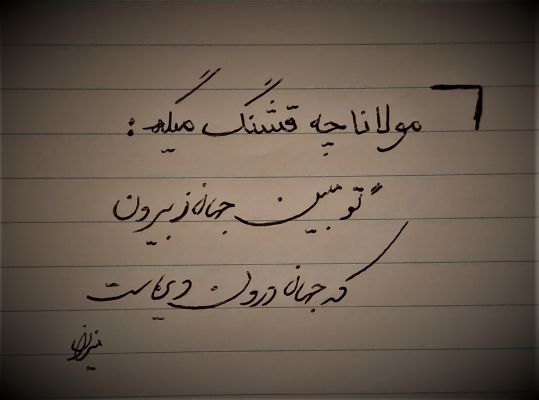 مولانا چه قشنگ میگه:
"تو مبین جهان ز بیرون
که جهان درون دیده است